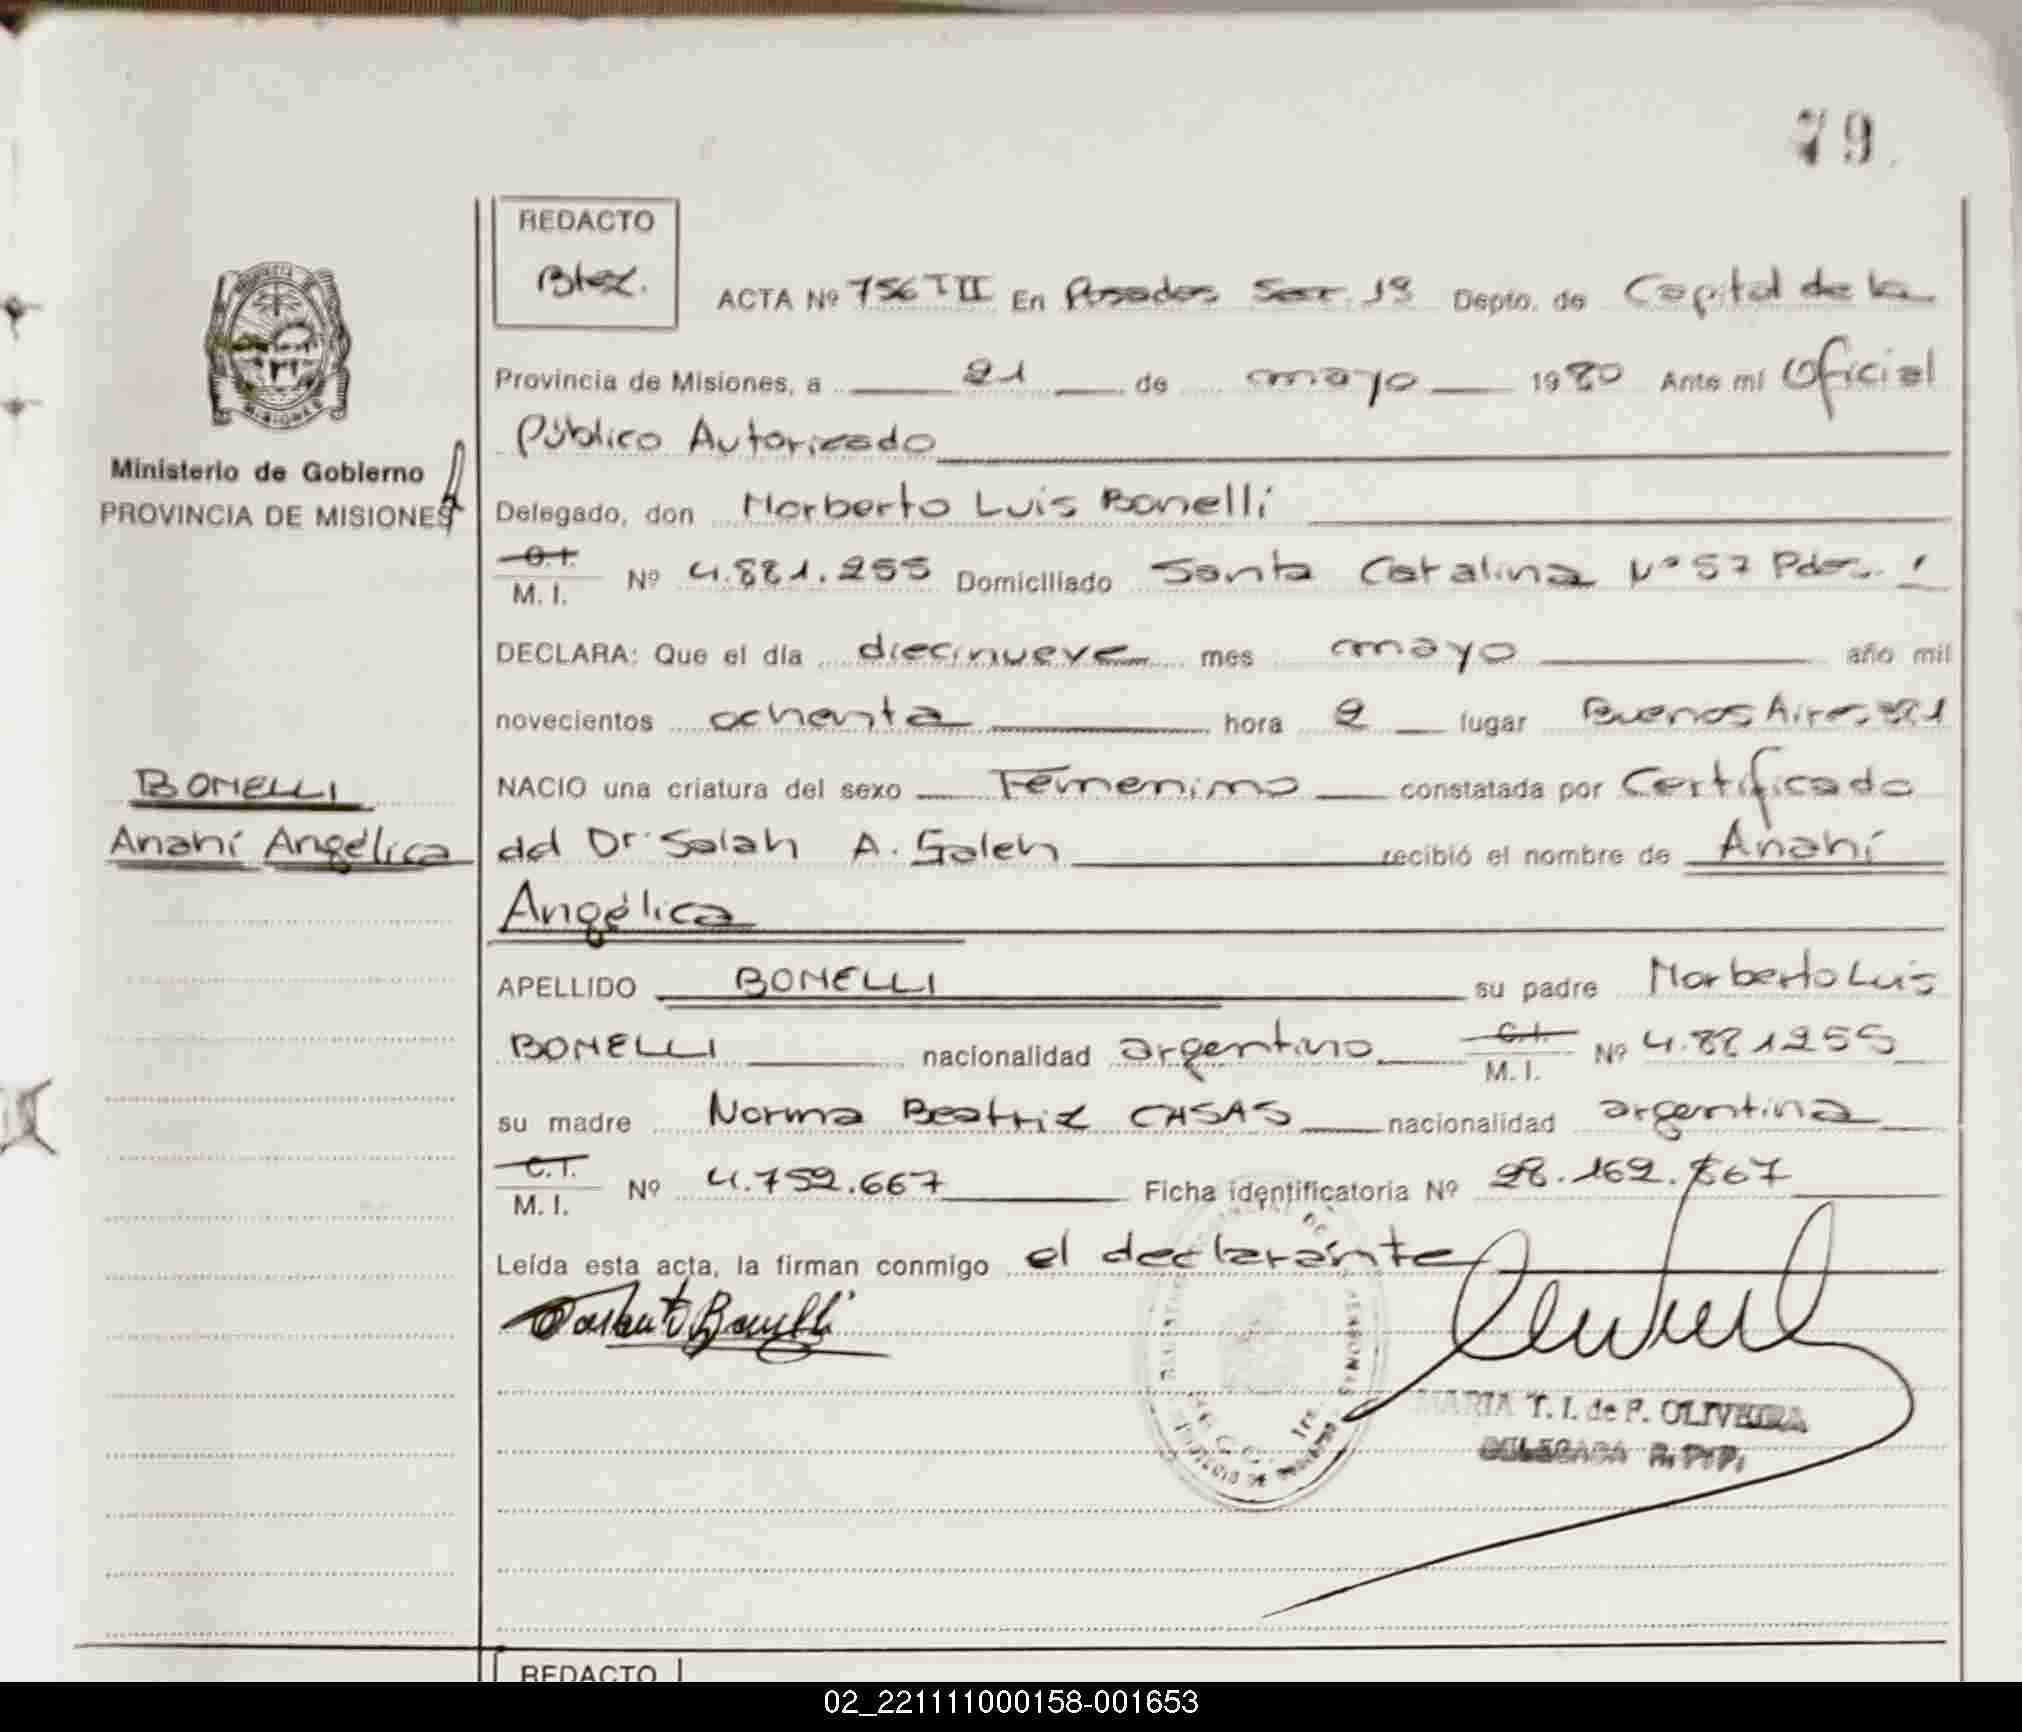 79
REDACTO
ACTA Nº 756 T II En Posadas Secc. 1ª Depto. de Capital de la
Provincia de Misiones, a 21 de mayo 1980 Ante mí Oficial
Público Autorizado
Ministerio de Gobierno
PROVINCIA DE MISIONES
Delegado, don Norberto Luis Bonelli
C.I.
M. I. Nº 4.881.255 Domiciliado Santa Catalina Nº 57 Pdas.
DECLARA: Que el día diecinueve mes mayo año mil
novecientos ochenta hora 2 lugar Buenos Aires
BONELLI
Anahí Angélica
NACIO una criatura del sexo Femenino constatada por Certificado
del Dr. Salah A. Saleh recibió el nombre de Anahí
Angélica
APELLIDO BONELLI su padre Norberto Luis
BONELLI nacionalidad argentino C.I. M. I. Nº 4.881255
su madre Norma Beatriz CASAS nacionalidad argentina
C.I.
M. I. Nº 4.752.667 Ficha identificatoria Nº 28.162.667
Leída esta acta, la firman conmigo el declarante
Norberto Bonelli
MARIA T. I. de P. OLIVEIRA
DELEGADA R. P. P.
REDACTO
02_221111000158-001653